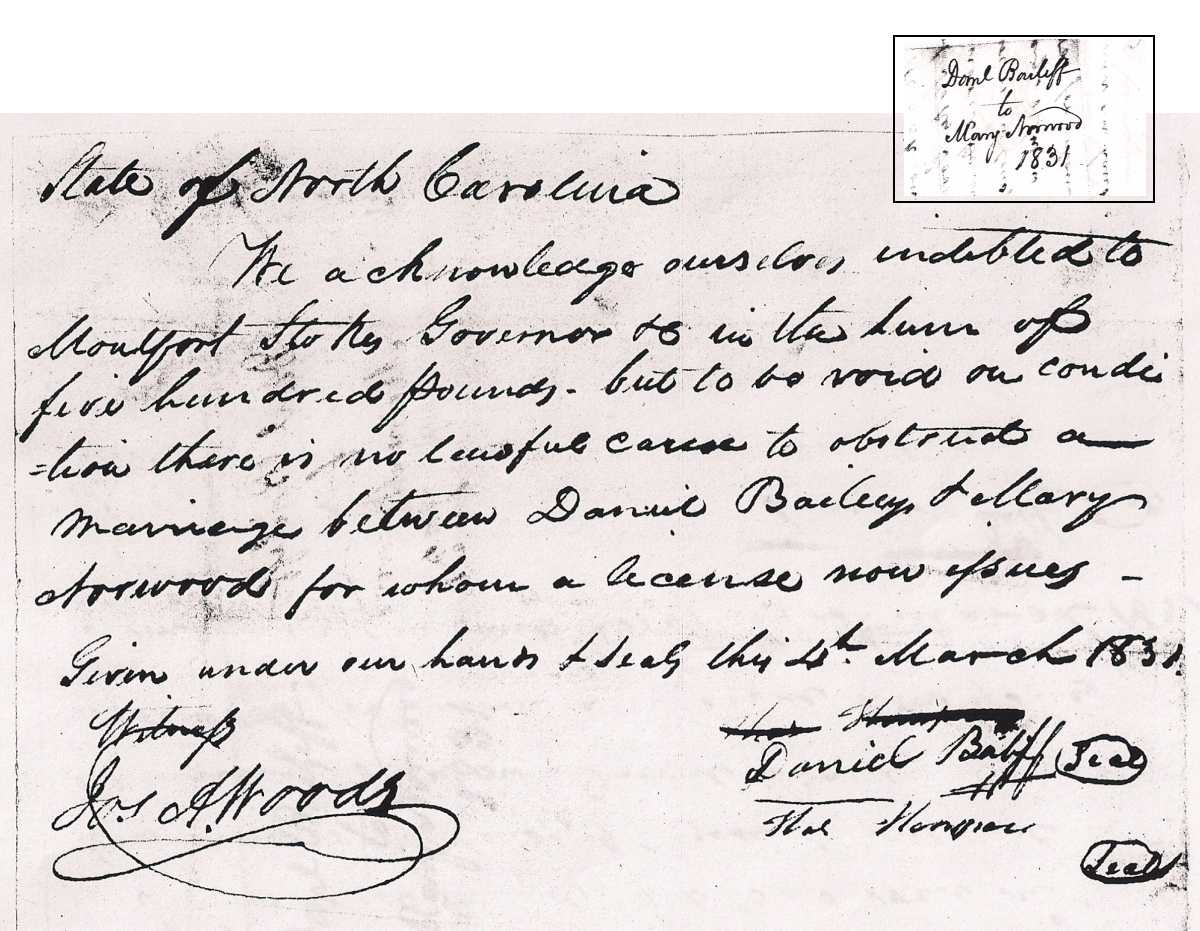 Danl Bailiff
to
Mary Norwood
1831
State of North Carolina
We acknowledge ourselves indebted to
Montfort Stokes Governor &c in the sum of
five hundred pounds - but to be void on condi
=tion there is no lawful cause to obstruct a
marriage between Daniel Bailey & Mary
Norwood for whom a license now issues -
Given under our hands & seals this 4th. March 1831.
Witness
Jas A. Woods
Daniel Bailiff Seal
Thos
Seal